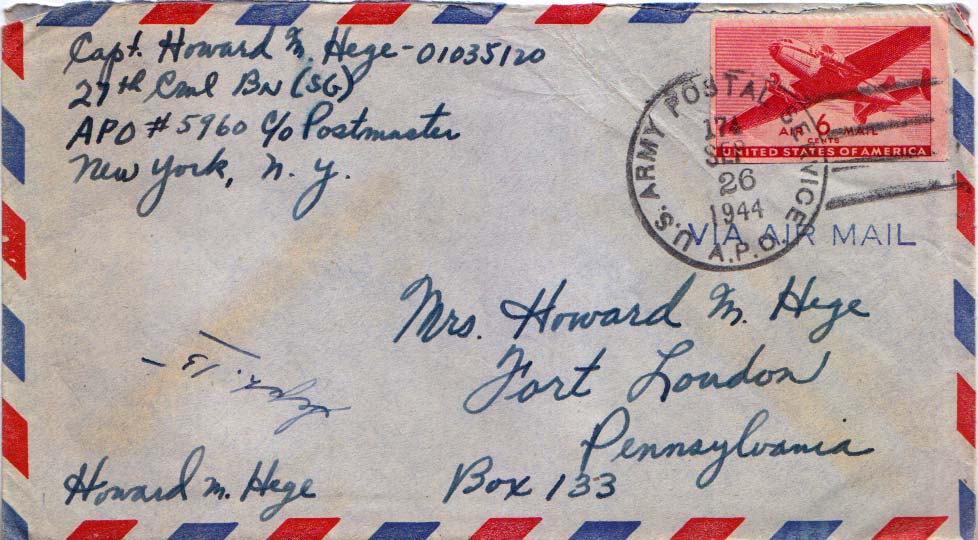 Capt. Howard M. Hege - 01035120
27th Cml Bn (SG)
APO # 5960 c/o Postmaster
New York, N. Y.
AIR 6 MAIL
CENTS
UNITED STATES OF AMERICA
U.S. ARMY POSTAL SERVICE
174
SEP
26
1944
A.P.O.
VIA AIR MAIL
Mrs. Howard M. Hege
Fort Loudon
Pennsylvania
Box 133
Sept. 13
Howard M. Hege